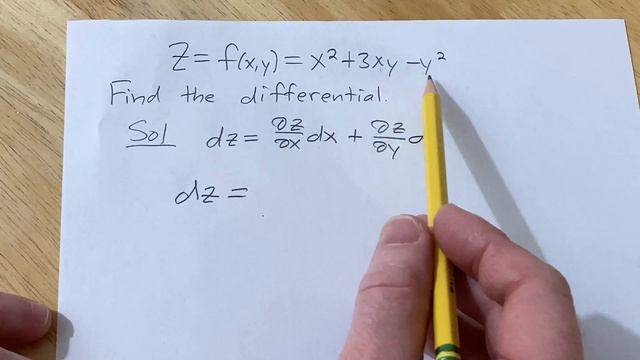 Z = f(x,y) = x² + 3xy - y²
Find the differential.
Sol dz = ∂z/∂x dx + ∂z/∂y
dz =